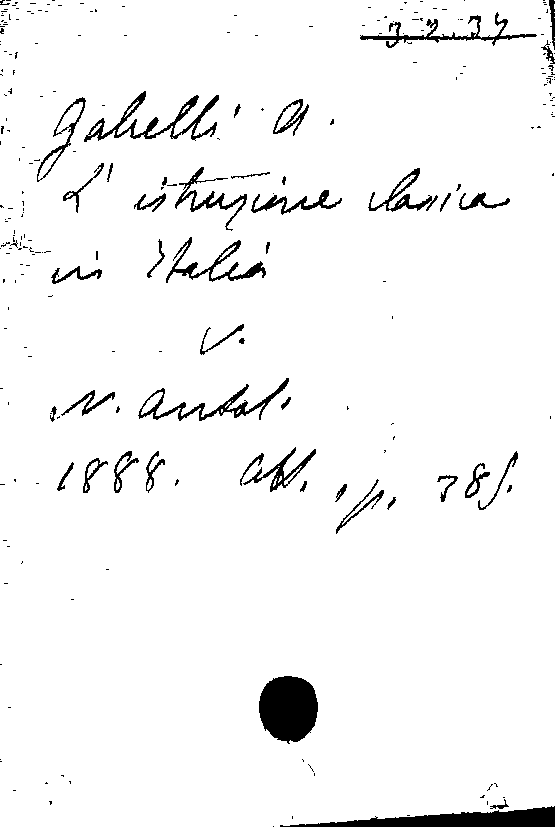 3.2.37
Gabelli A.
L'istruzione classica
in Italia
v.
N. Antol.
1888. Ott., p. 385.